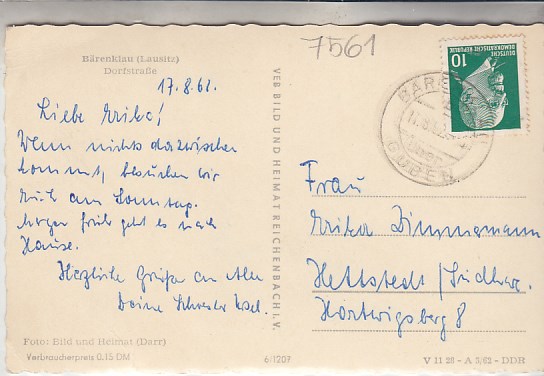 Bärenklau (Lausitz)
Dorfstraße
7561
17.8.62.
Liebe Erika!
Wenn nichts dazwischen
kommt, besuchen wir
Euch am Sonntag.
Morgen früh geht es nach
Hause.
Herzliche Grüße an Alle
Deine Schwester
Foto: Bild und Heimat (Darr)
Verbraucherpreis 0.15 DM
VEB BILD UND HEIMAT REICHENBACH i. V.
6/1207
10
DEUTSCHE
DEMOKRATISCHE REPUBLIK
GUBEN
Frau
Erika Zimmermann
Hettstedt / Südharz.
Hartwigsberg 8
V 11 28 - A 5/62 - DDR